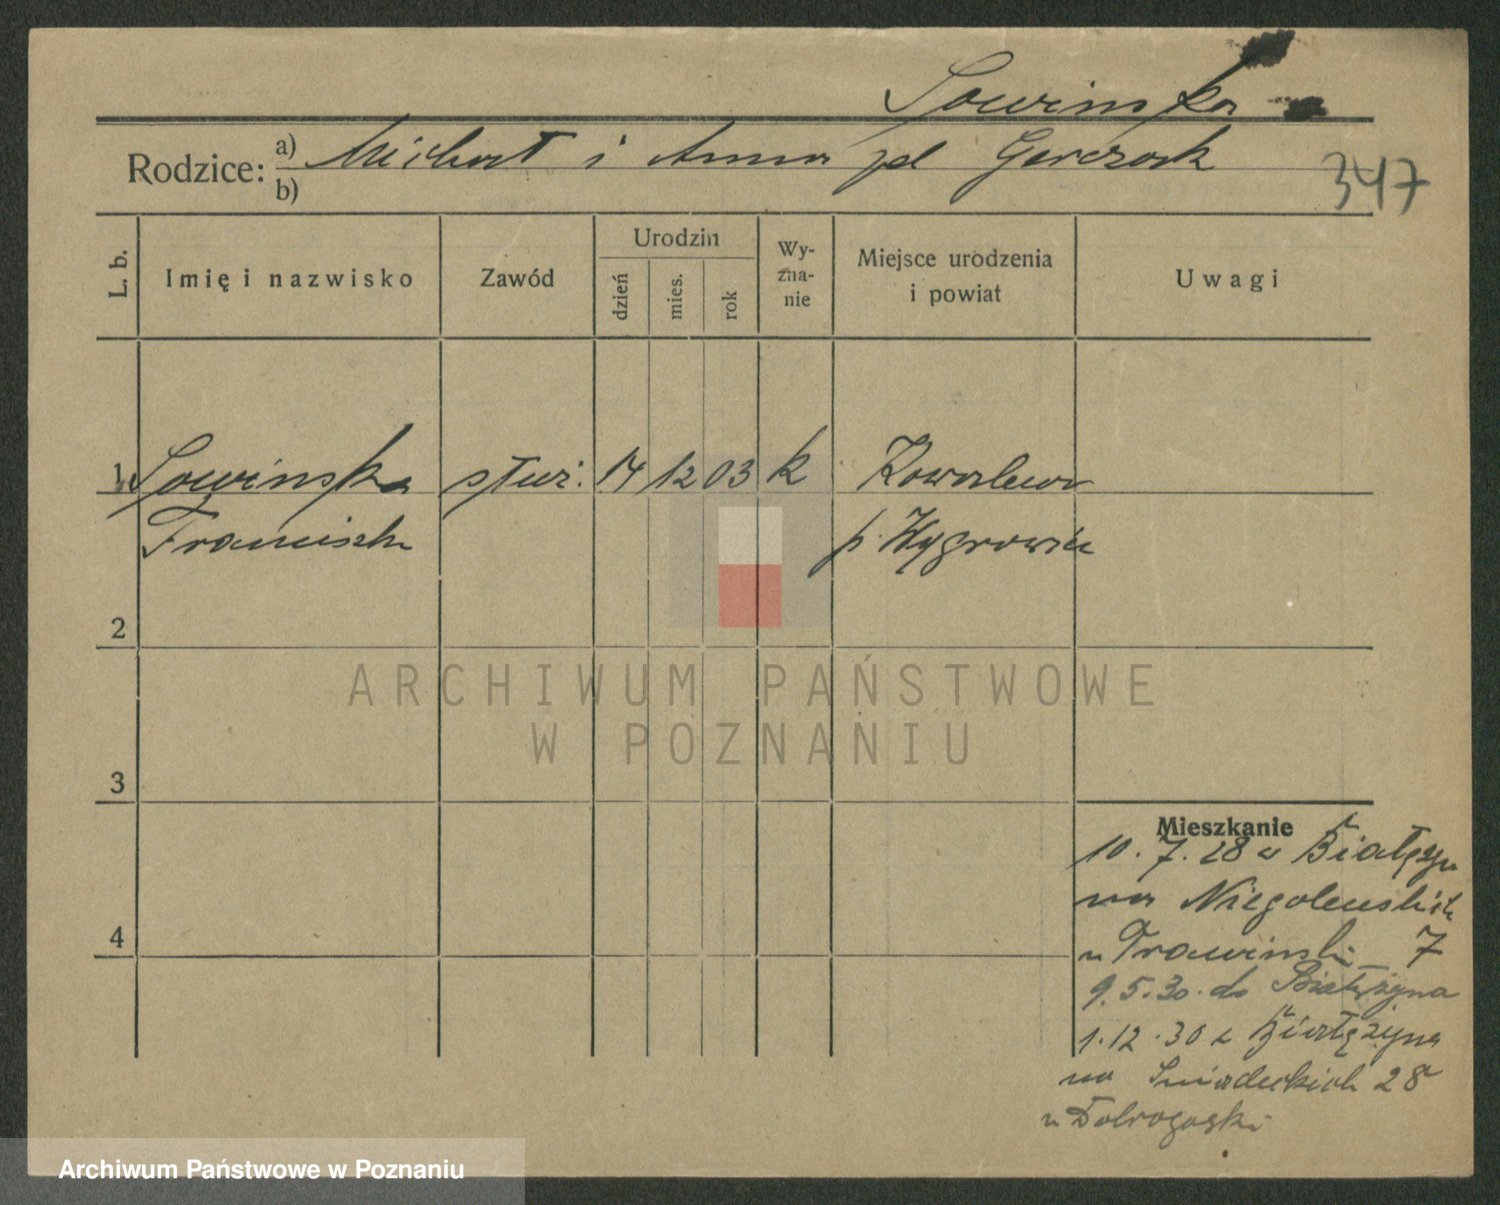 Sowinska
Rodzice: a) Michał i Anna pd Garczak
b)
347
L. b.
Imię i nazwisko
Zawód
Urodzin
dzień
mies.
rok
Wy-
zna-
nie
Miejsce urodzenia
i powiat
Uwagi
1 Sowinska służ. 14 12 03 k Kowalewo
Franciszka p. Wągrowiec
2
3
4
Mieszkanie
10. 7. 28 z Białężyn
na Niegolewskich
u Trawinski 7
9. 5. 30. do Białężyna
1. 12. 30 z Białężyna
na Sniadeckich 28
u Dobrogoski
ARCHIWUM PAŃSTWOWE
W POZNANIU
Archiwum Państwowe w Poznaniu